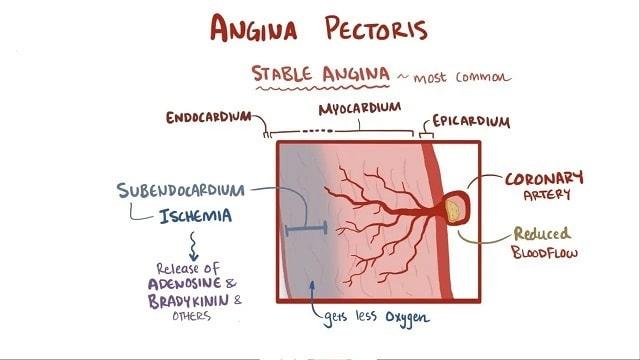 ANGINA PECTORIS
STABLE ANGINA ~ most common
ENDOCARDIUM
MYOCARDIUM
EPICARDIUM
SUBENDOCARDIUM
ISCHEMIA
Release of
ADENOSINE &
BRADYKININ &
OTHERS
gets less oxygen
CORONARY
ARTERY
Reduced
BLOODFLOW